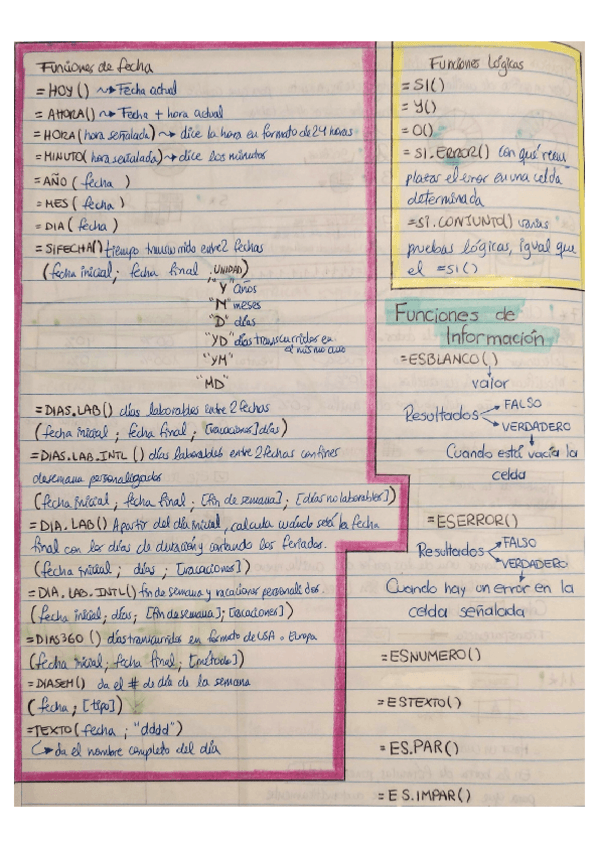 Funciones de fecha
= HOY () ⤳ Fecha actual
= AHORA() ⤳ Fecha + hora actual
= HORA (hora señalada) ⤳ dice la hora en formato de 24 horas
= MINUTO (hora señalada) ⤳ dice los minutos
= AÑO ( fecha )
= MES ( fecha )
= DIA ( fecha )
= SIFECHA() tiempo transcurrido entre 2 fechas
(fecha inicial ; fecha final . UNIDAD)
"Y" años
"M" meses
"D" días
"YD" días transcurridos en
el mismo año
"YM"
"MD"
= DIAS.LAB() días laborables entre 2 fechas
(fecha inicial ; fecha final ; [vacaciones] días)
= DIAS.LAB.INTL () días laborables entre 2 fechas con fines
de semana personalizados
(fecha inicial ; fecha final ; [fin de semana] ; [días no laborables])
= DIA.LAB() A partir del día inicial, calcula cuándo será la fecha
final con los días de duración y contando los feriados.
(fecha inicial ; días ; [vacaciones])
= DIA.LAB.INTL() fin de semana y vacaciones personalizados
(fecha inicial; días; [fin de semana]; [vacaciones])
= DIAS360 () días transcurridos en formato de USA o Europa
(fecha inicial; fecha final; [método])
= DIASEM() da el # de día de la semana
(fecha ; [tipo])
= TEXTO (fecha ; "dddd")
↳ da el nombre completo del día
Funciones lógicas
= SI()
= Y()
= O()
= SI.ERROR() con qué reem
plazar el error en una celda
determinada
= SI.CONJUNTO() varias
pruebas lógicas, igual que
el =SI()
Funciones de
Información
= ESBLANCO()
valor
Resultados → FALSO
→ VERDADERO
Cuando está vacía la
celda
= ESERROR()
Resultados → FALSO
→ VERDADERO
Cuando hay un error en la
celda señalada
= ESNUMERO()
= ESTEXTO()
= ES.PAR()
= ES.IMPAR()